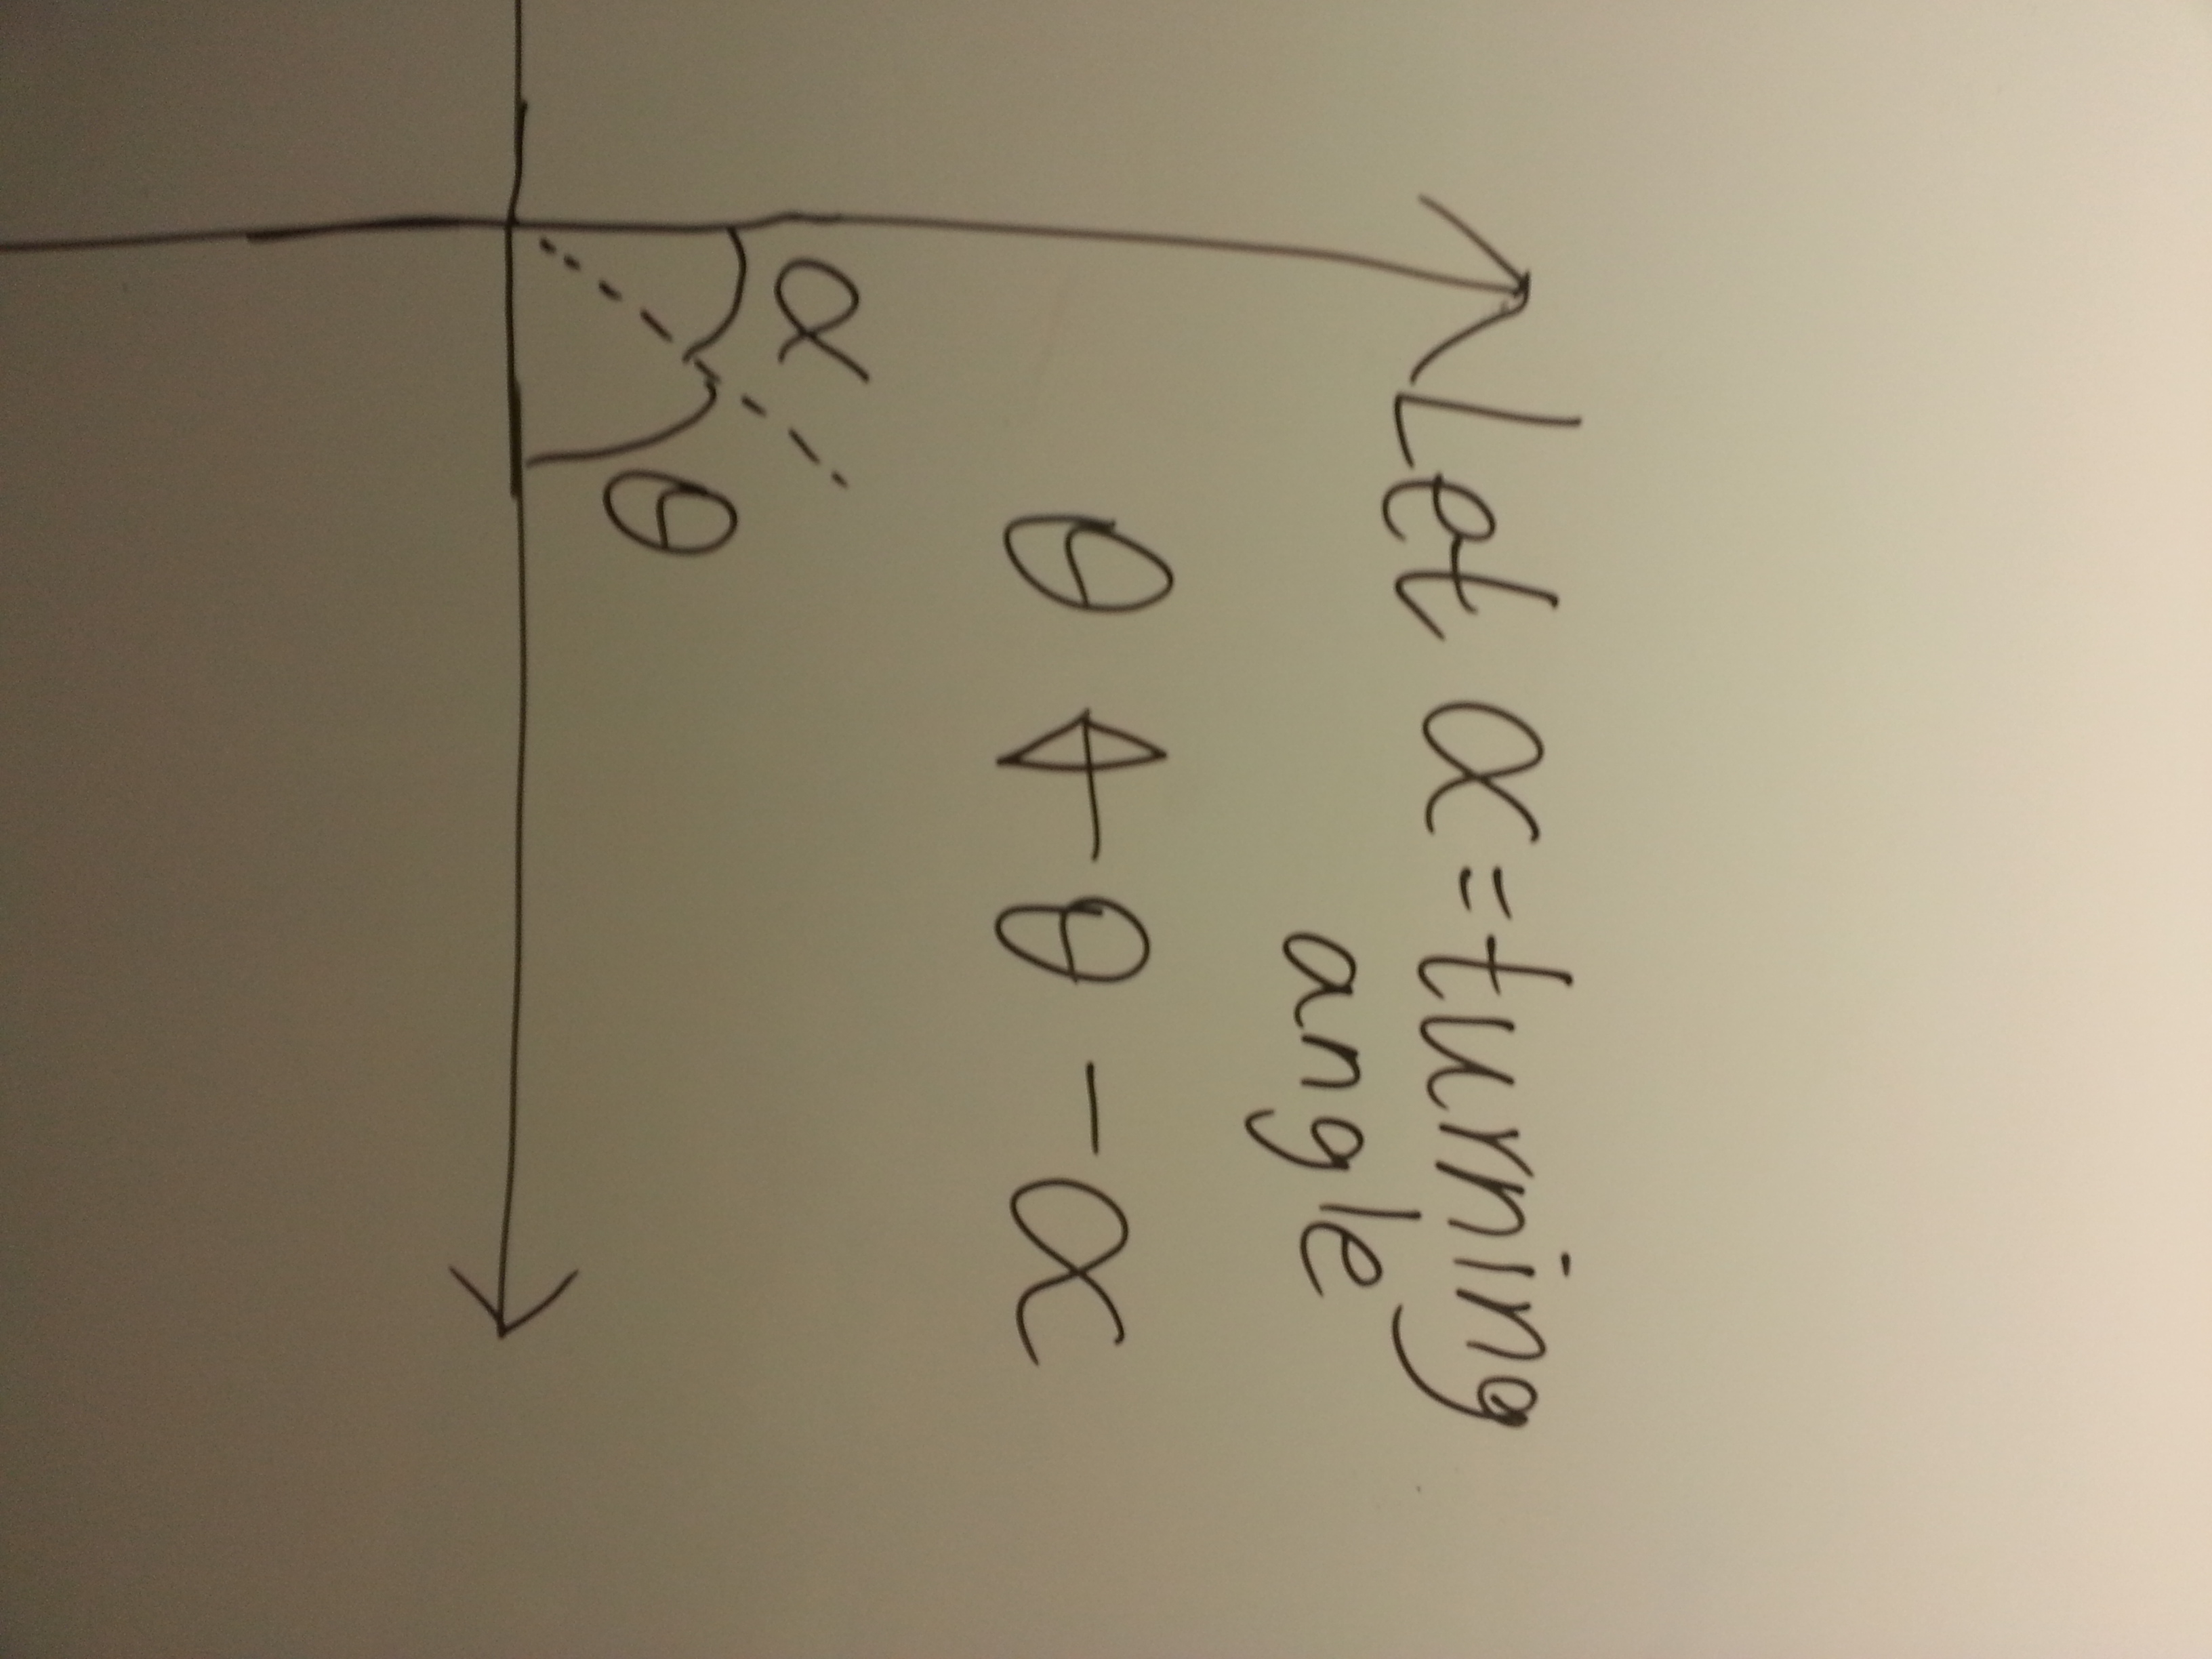 Let α = turning
angle
θ ← θ - α
α
θ